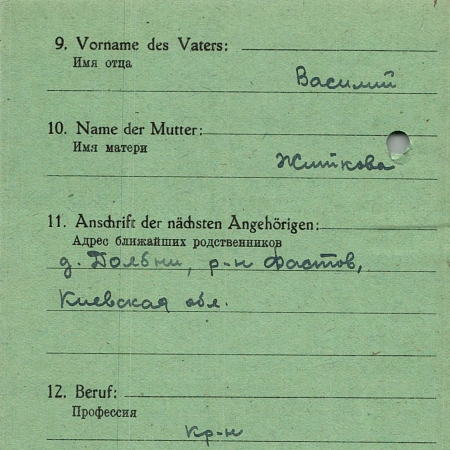 9. Vorname des Vaters:
Имя отца
Василий
10. Name der Mutter:
Имя матери
Житкова
11. Anschrift der nächsten Angehörigen:
Адрес ближайших родственников
д. , р-н Фастов,
Киевская обл.
12. Beruf:
Профессия
кр-н